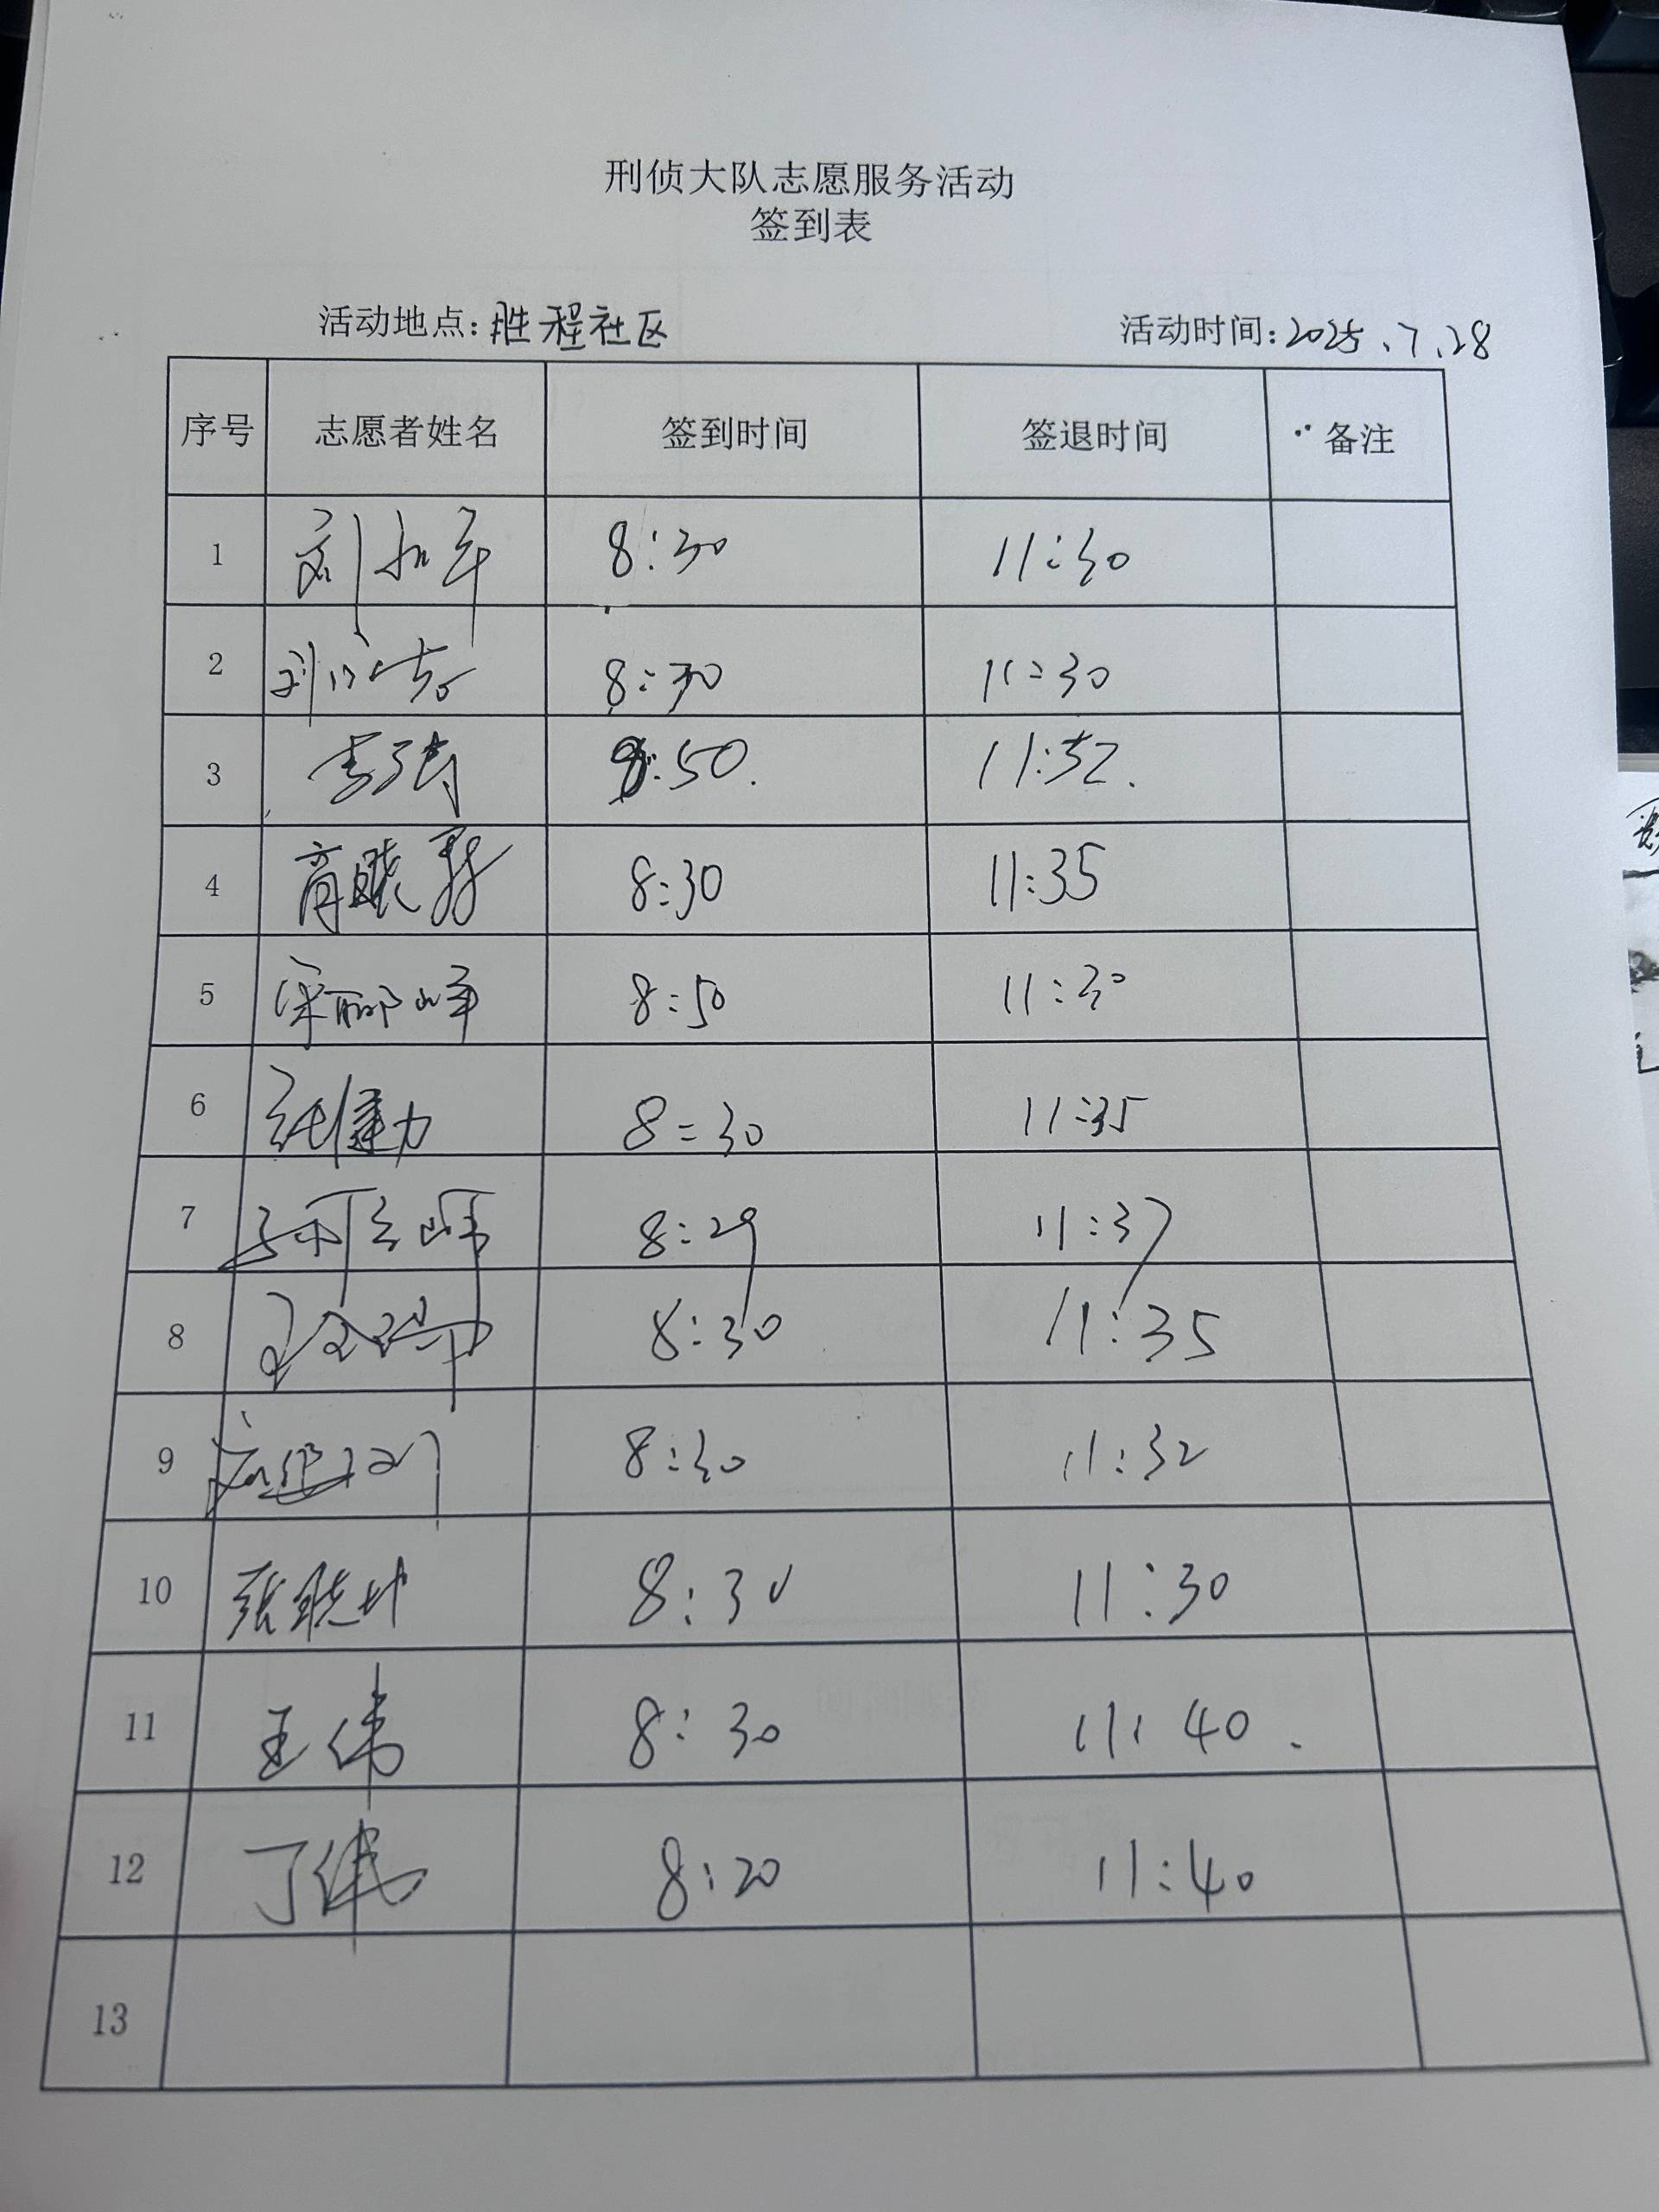 刑侦大队志愿服务活动
签到表
活动地点:胜程社区 活动时间:2025.7.28
序号 志愿者姓名 签到时间 签退时间 备注
1 8:30 11:30
2 8:30 11:30
3 李强 8:50. 11:32.
4 8:30 11:35
5 8:50 11:30
6 张健力 8:30 11:35
7 8:29 11:37
8 8:30 11:35
9 8:30 11:32
10 张晓坤 8:30 11:30
11 王伟 8:30 11:40.
12 丁伟 8:20 11:40
13